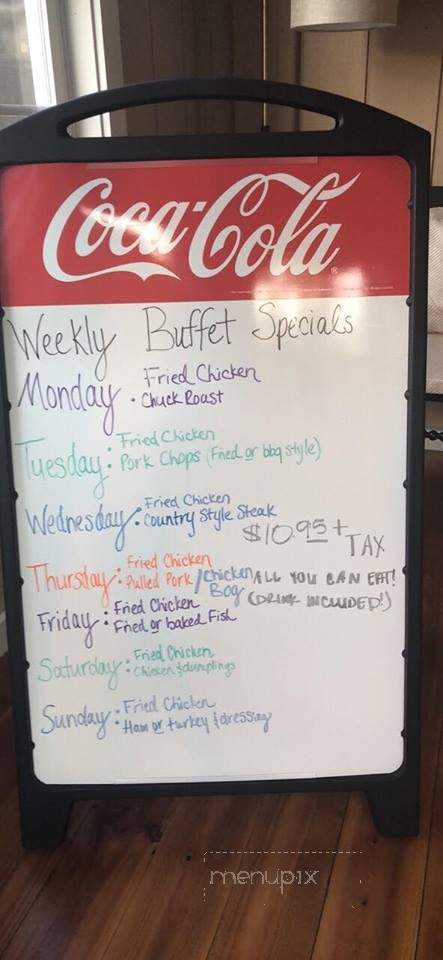 Coca-Cola
Weekly Buffet Specials
Monday: Fried Chicken
Chuck Roast
Tuesday: Fried Chicken
Pork Chops (Fried or bbq style)
Wednesday: Fried Chicken
Country Style Steak
$10.95 + TAX
ALL YOU CAN EAT!
(DRINK INCLUDED!)
Thursday: Fried Chicken
Pulled Pork / Chicken Bog
Friday: Fried Chicken
Fried or baked Fish
Saturday: Fried Chicken
Chicken & dumplings
Sunday: Fried Chicken
Ham or turkey & dressing
menupix